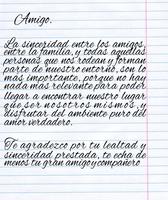 Amigo.
La sinceridad entre los amigos,
entre la familia, y todas aquellas
personas que nos rodean y forman
parte de nuestro entorno, son lo
más importante, porque no hay
nada más relevante para poder
llegar a encontrar nuestro lugar
que ser nosotros mismos, y
disfrutar del ambiente puro del
amor verdadero.
Te agradezco por tu lealtad y
sinceridad prestada, te echa de
menos tu gran amigo y compañero